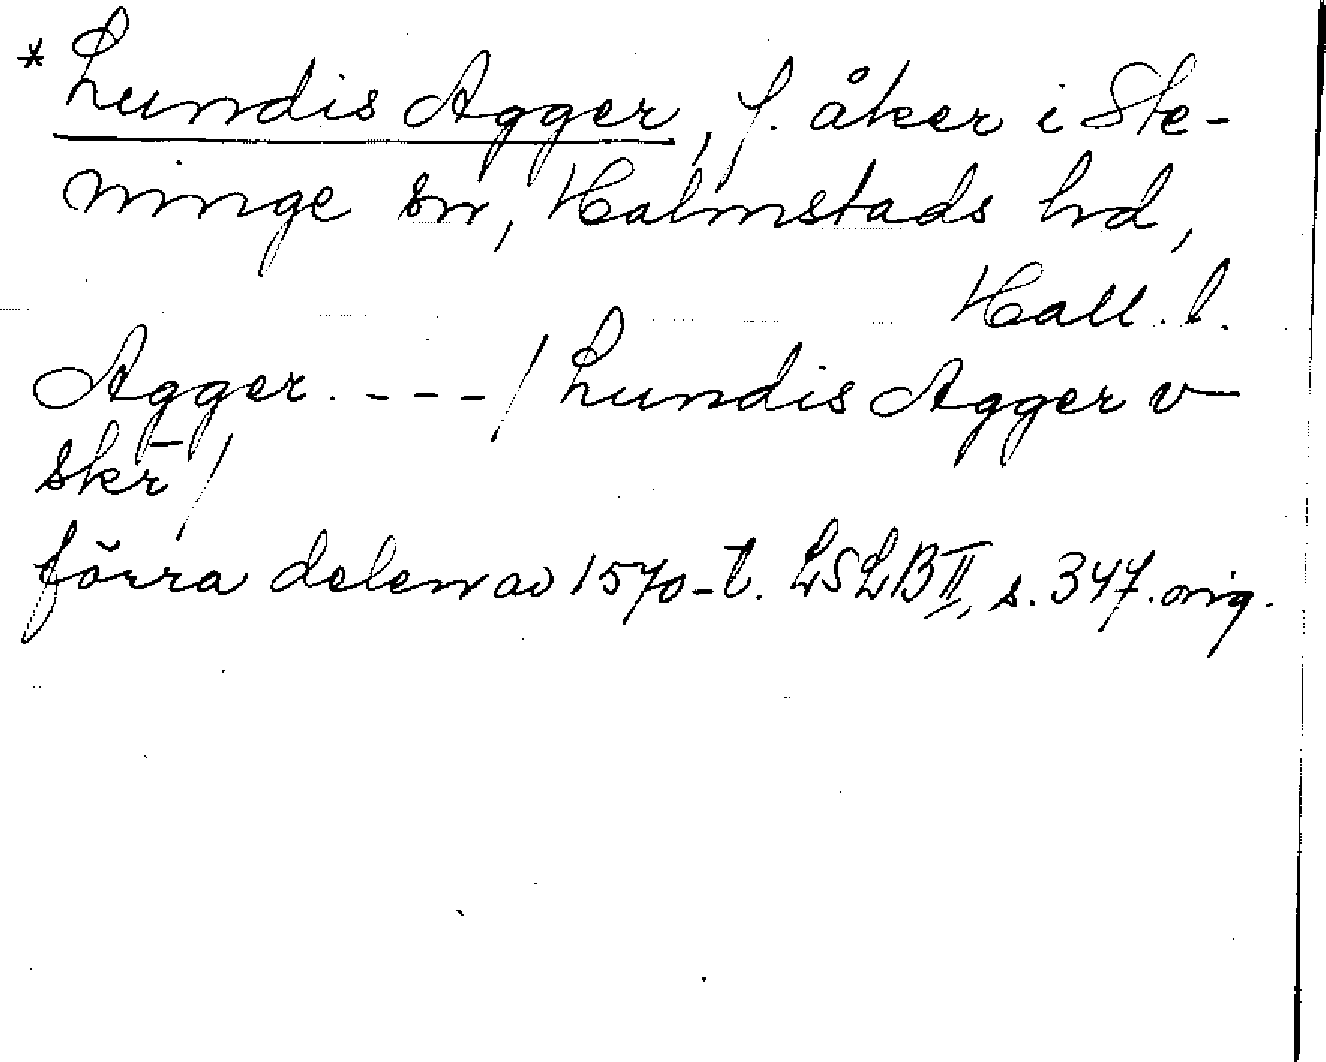 * Lundis Agger, f. åker i Ste-
ninge sn, Halmstads hd,
Hall. l.
Agger. ---/ Lundis Agger v
skr̄ /
förra delen av 1570-t. LSLB II, s. 347. orig.